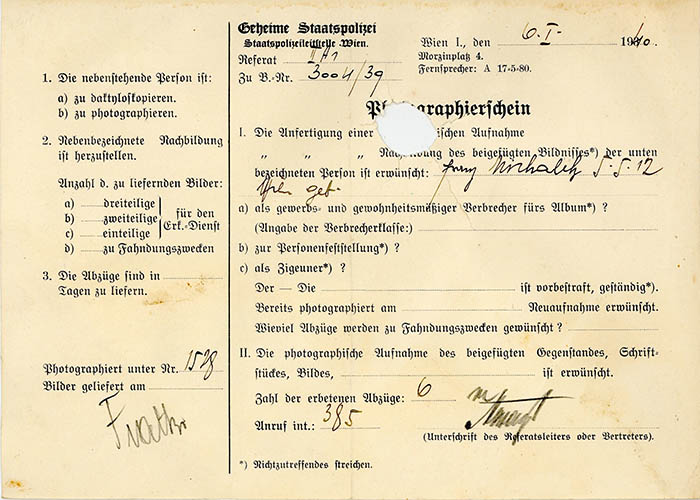 1. Die nebenstehende Person ist:
a) zu daktyloskopieren.
b) zu photographieren.
2. Nebenbezeichnete Nachbildung
ist herzustellen.
Anzahl d. zu liefernden Bilder:
a) dreiteilige
b) zweiteilige
c) einteilige
für den
Erk.-Dienst
d) zu Fahndungszwecken
3. Die Abzüge sind in
Tagen zu liefern.
Photographiert unter Nr. 1528
Bilder geliefert am
Geheime Staatspolizei
Staatspolizeileitstelle Wien.
Referat II A1
Zu B.-Nr. 3004/39
Wien I., den 6.I. 1940.
Morzinplatz 4.
Fernsprecher: A 17-5-80.
Photographierschein
I. Die Anfertigung einer ischen Aufnahme
„ „ „ Nachbildung des beigefügten Bildnisses*) der unten
bezeichneten Person ist erwünscht: Franz Michalek 5.5.12
Wien geb.
a) als gewerbs- und gewohnheitsmäßiger Verbrecher fürs Album*) ?
(Angabe der Verbrecherklasse:)
b) zur Personenfeststellung*) ?
c) als Zigeuner*) ?
Der — Die ist vorbestraft, geständig*).
Bereits photographiert am Neuaufnahme erwünscht.
Wieviel Abzüge werden zu Fahndungszwecken gewünscht ?
II. Die photographische Aufnahme des beigefügten Gegenstandes, Schrift-
stückes, Bildes, ist erwünscht.
Zahl der erbetenen Abzüge: 6
Anruf int.: 385
(Unterschrift des Referatsleiters oder Vertreters).
*) Nichtzutreffendes streichen.